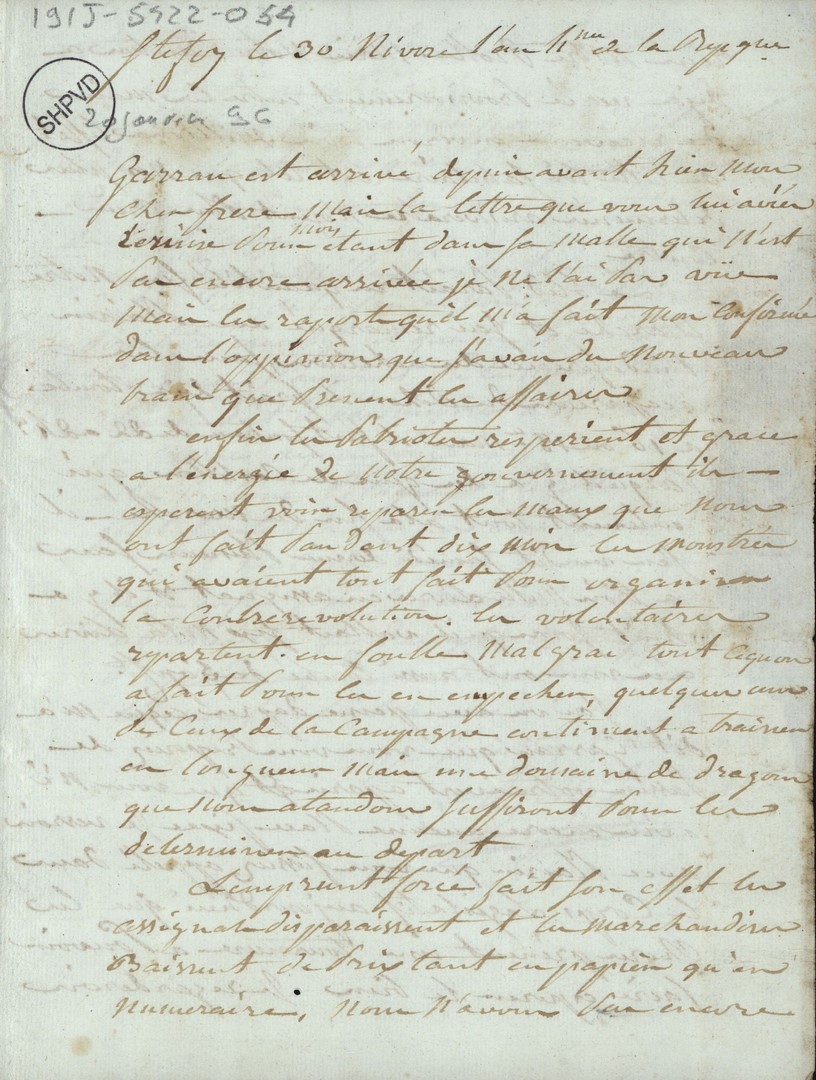 191J-5922-054
Stefoy le 30 Nivose l'an 4me de la Repque
SHPVD
20 janvier 96
Garrau est arrivé depuis avant hier mon
cher frere mais la lettre que vous lui aviés
ecritte pour moi etant dans sa malle qui n'est
pas encore arrivée je ne l'ai pas vüe
mais les raports qu'il m'a fait mon confirmé
dans l'oppinion que j'avais du nouveau
train que prenent les affaires
enfin les patriotes respirent et grace
a l'énergie de notre gouvernement ils
esperent voir reparer les maux que nous
ont fait pandant dix mois les monstres
qui avaient tout fait pour organiser
la contrerevolution. les volontaires
repartent en foulle malgrai tout ce quon
a fait pour les en empecher, quelques uns
de ceux de la campagne continuent a trainer
en longueur mais une domaine de dragons
que nous atandons suffiront pour les
determiner au depart
Lemprunt forcé fait son effet les
assignats disparaissent et les marchandises
Baissent de prix tant en papier qu'en
numeraire, nous n'avons pas encore